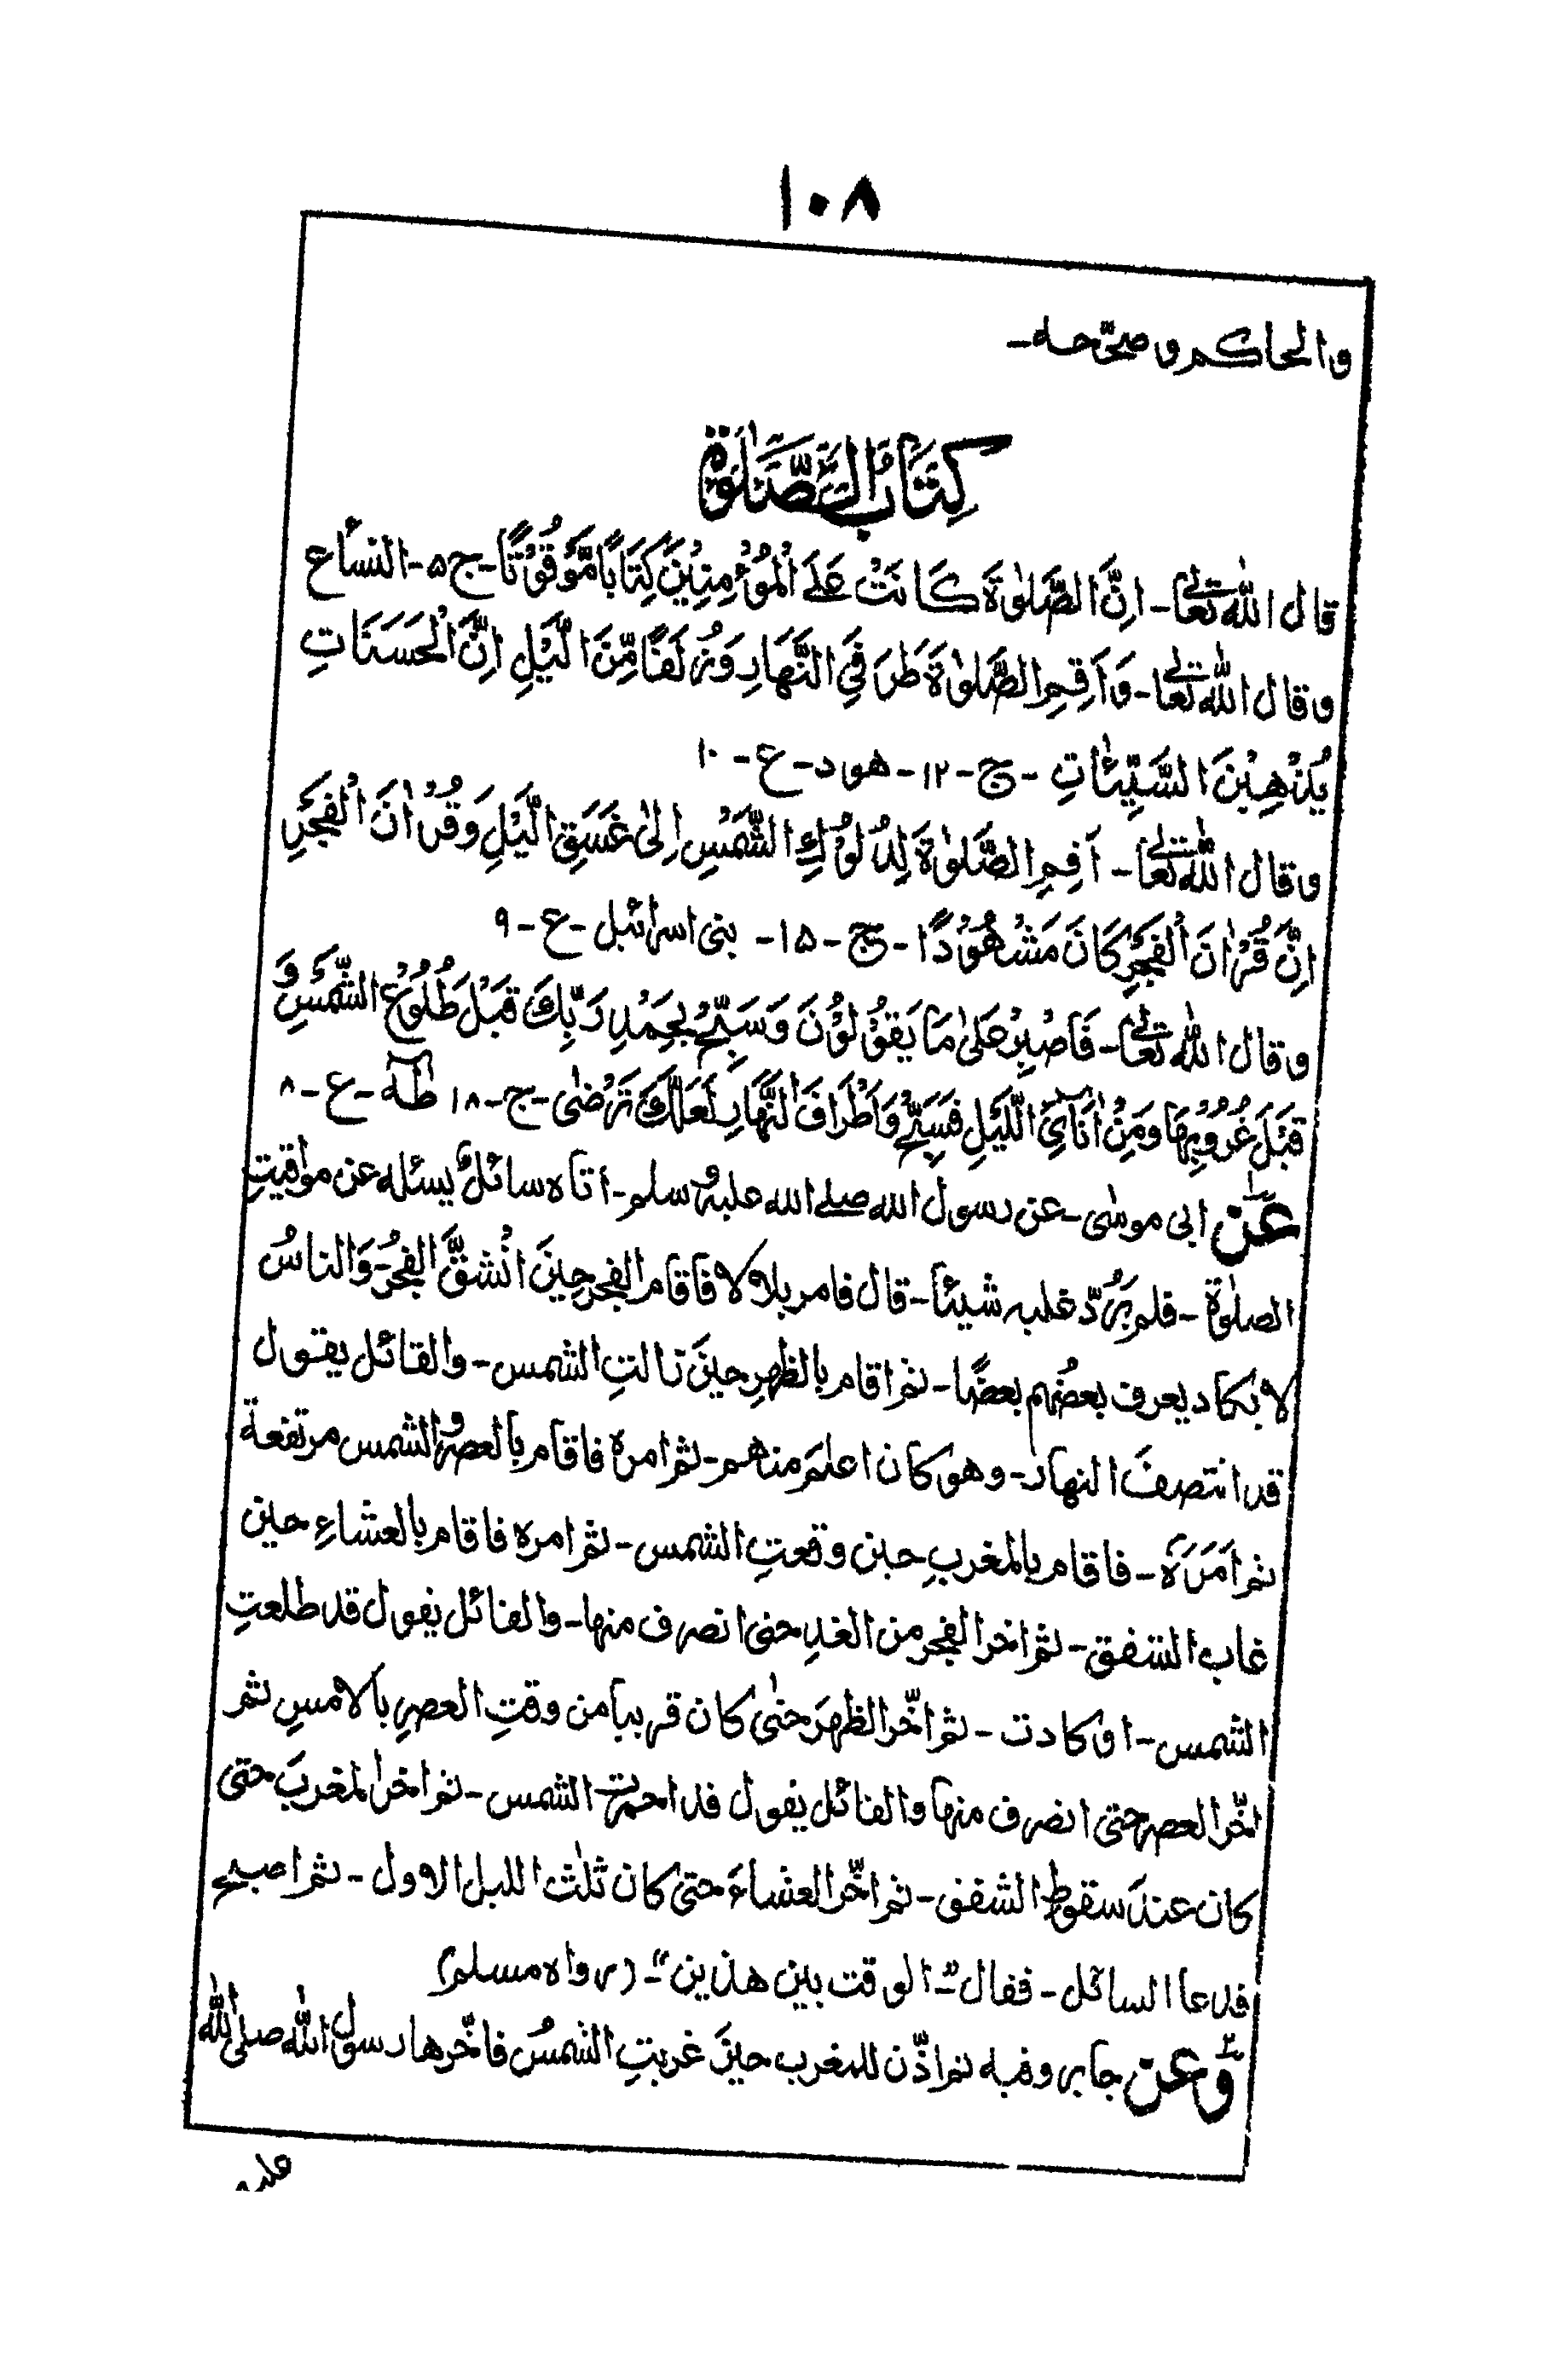 ١٠٨
والحاكم وصحّحه-
كِتَابُ الصَّلٰوة
قال الله تعالٰى- اِنَّ الصَّلٰوةَ كَانَتْ عَلَى الْمُؤْمِنِيْنَ كِتَابًا مَّوْقُوْتًا- ج ۵- النساء ع
وقال الله تعالٰى- وَاَقِمِ الصَّلٰوةَ طَرَفَيِ النَّهَارِ وَزُلَفًا مِّنَ الَّيْلِ اِنَّ الْحَسَنَاتِ
يُذْهِبْنَ السَّيِّئَاتِ - ج - ١٢ - هود - ع - ١٠
وقال الله تعالٰى- اَقِمِ الصَّلٰوةَ لِدُلُوْكِ الشَّمْسِ اِلٰى غَسَقِ الَّيْلِ وَقُرْاٰنَ الْفَجْرِ
اِنَّ قُرْاٰنَ الْفَجْرِ كَانَ مَشْهُوْدًا - ج - ١۵ - بنى اسرائيل - ع - ٩
وقال الله تعالٰى- فَاصْبِرْ عَلٰى مَا يَقُوْلُوْنَ وَسَبِّحْ بِحَمْدِ رَبِّكَ قَبْلَ طُلُوْعِ الشَّمْسِ وَ
قَبْلَ غُرُوْبِهَا وَمِنْ اٰنَآئِ الَّيْلِ فَسَبِّحْ وَاَطْرَافَ النَّهَارِ لَعَلَّكَ تَرْضٰى - ج - ١٨ طٰهٰ - ع - ٨
عَن ابى موسٰى- عن رسول الله صلى الله عليه وسلم- اتاه سائلٌ يسئله عن مواقيتِ
الصلٰوة - فلم يَرُدّ عليه شيئا- قال فامر بلالا فاقام الفجر حِيْنَ انْشقَّ الفجرُ- وَالناسُ
لا يكاد يعرف بعضُهم بعضًا- ثم اقام بالظهرِ حينَ زالتِ الشمس- والقائل يقول
قد انتصفَ النهار- وهو كان اعلمَ منهم- ثم امره فاقام بالعصر والشمس مرتفعة
ثم اَمَرَهٗ - فاقام بالمغربِ حين وقعتِ الشمس- ثم امره فاقام بالعشاءِ حين
غاب الشفق- ثم اخر الفجر من الغدِ حتى انصرف منها- والقائل يقول قد طلعتِ
الشمس- او كادت - ثم اخّر الظهرَ حتٰى كان قريبا من وقتِ العصرِ بالامسِ ثم
اخّر العصر حتى انصرف منها والقائل يقول قد احمرت الشمس- ثم اخر المغربَ حتى
كان عندَ سقوطِ الشفق- ثم اخّر العشاءَ حتى كان ثلث الليل الاول - ثم اصبح
فدعا السائل- فقال "- الوقت بين هذين"- (رواه مسلم)
وَعن جابر وفيه ثم اذّن للمغرب حينَ غربتِ الشمسُ فاخّرها رسول الله صلى الله
عليه